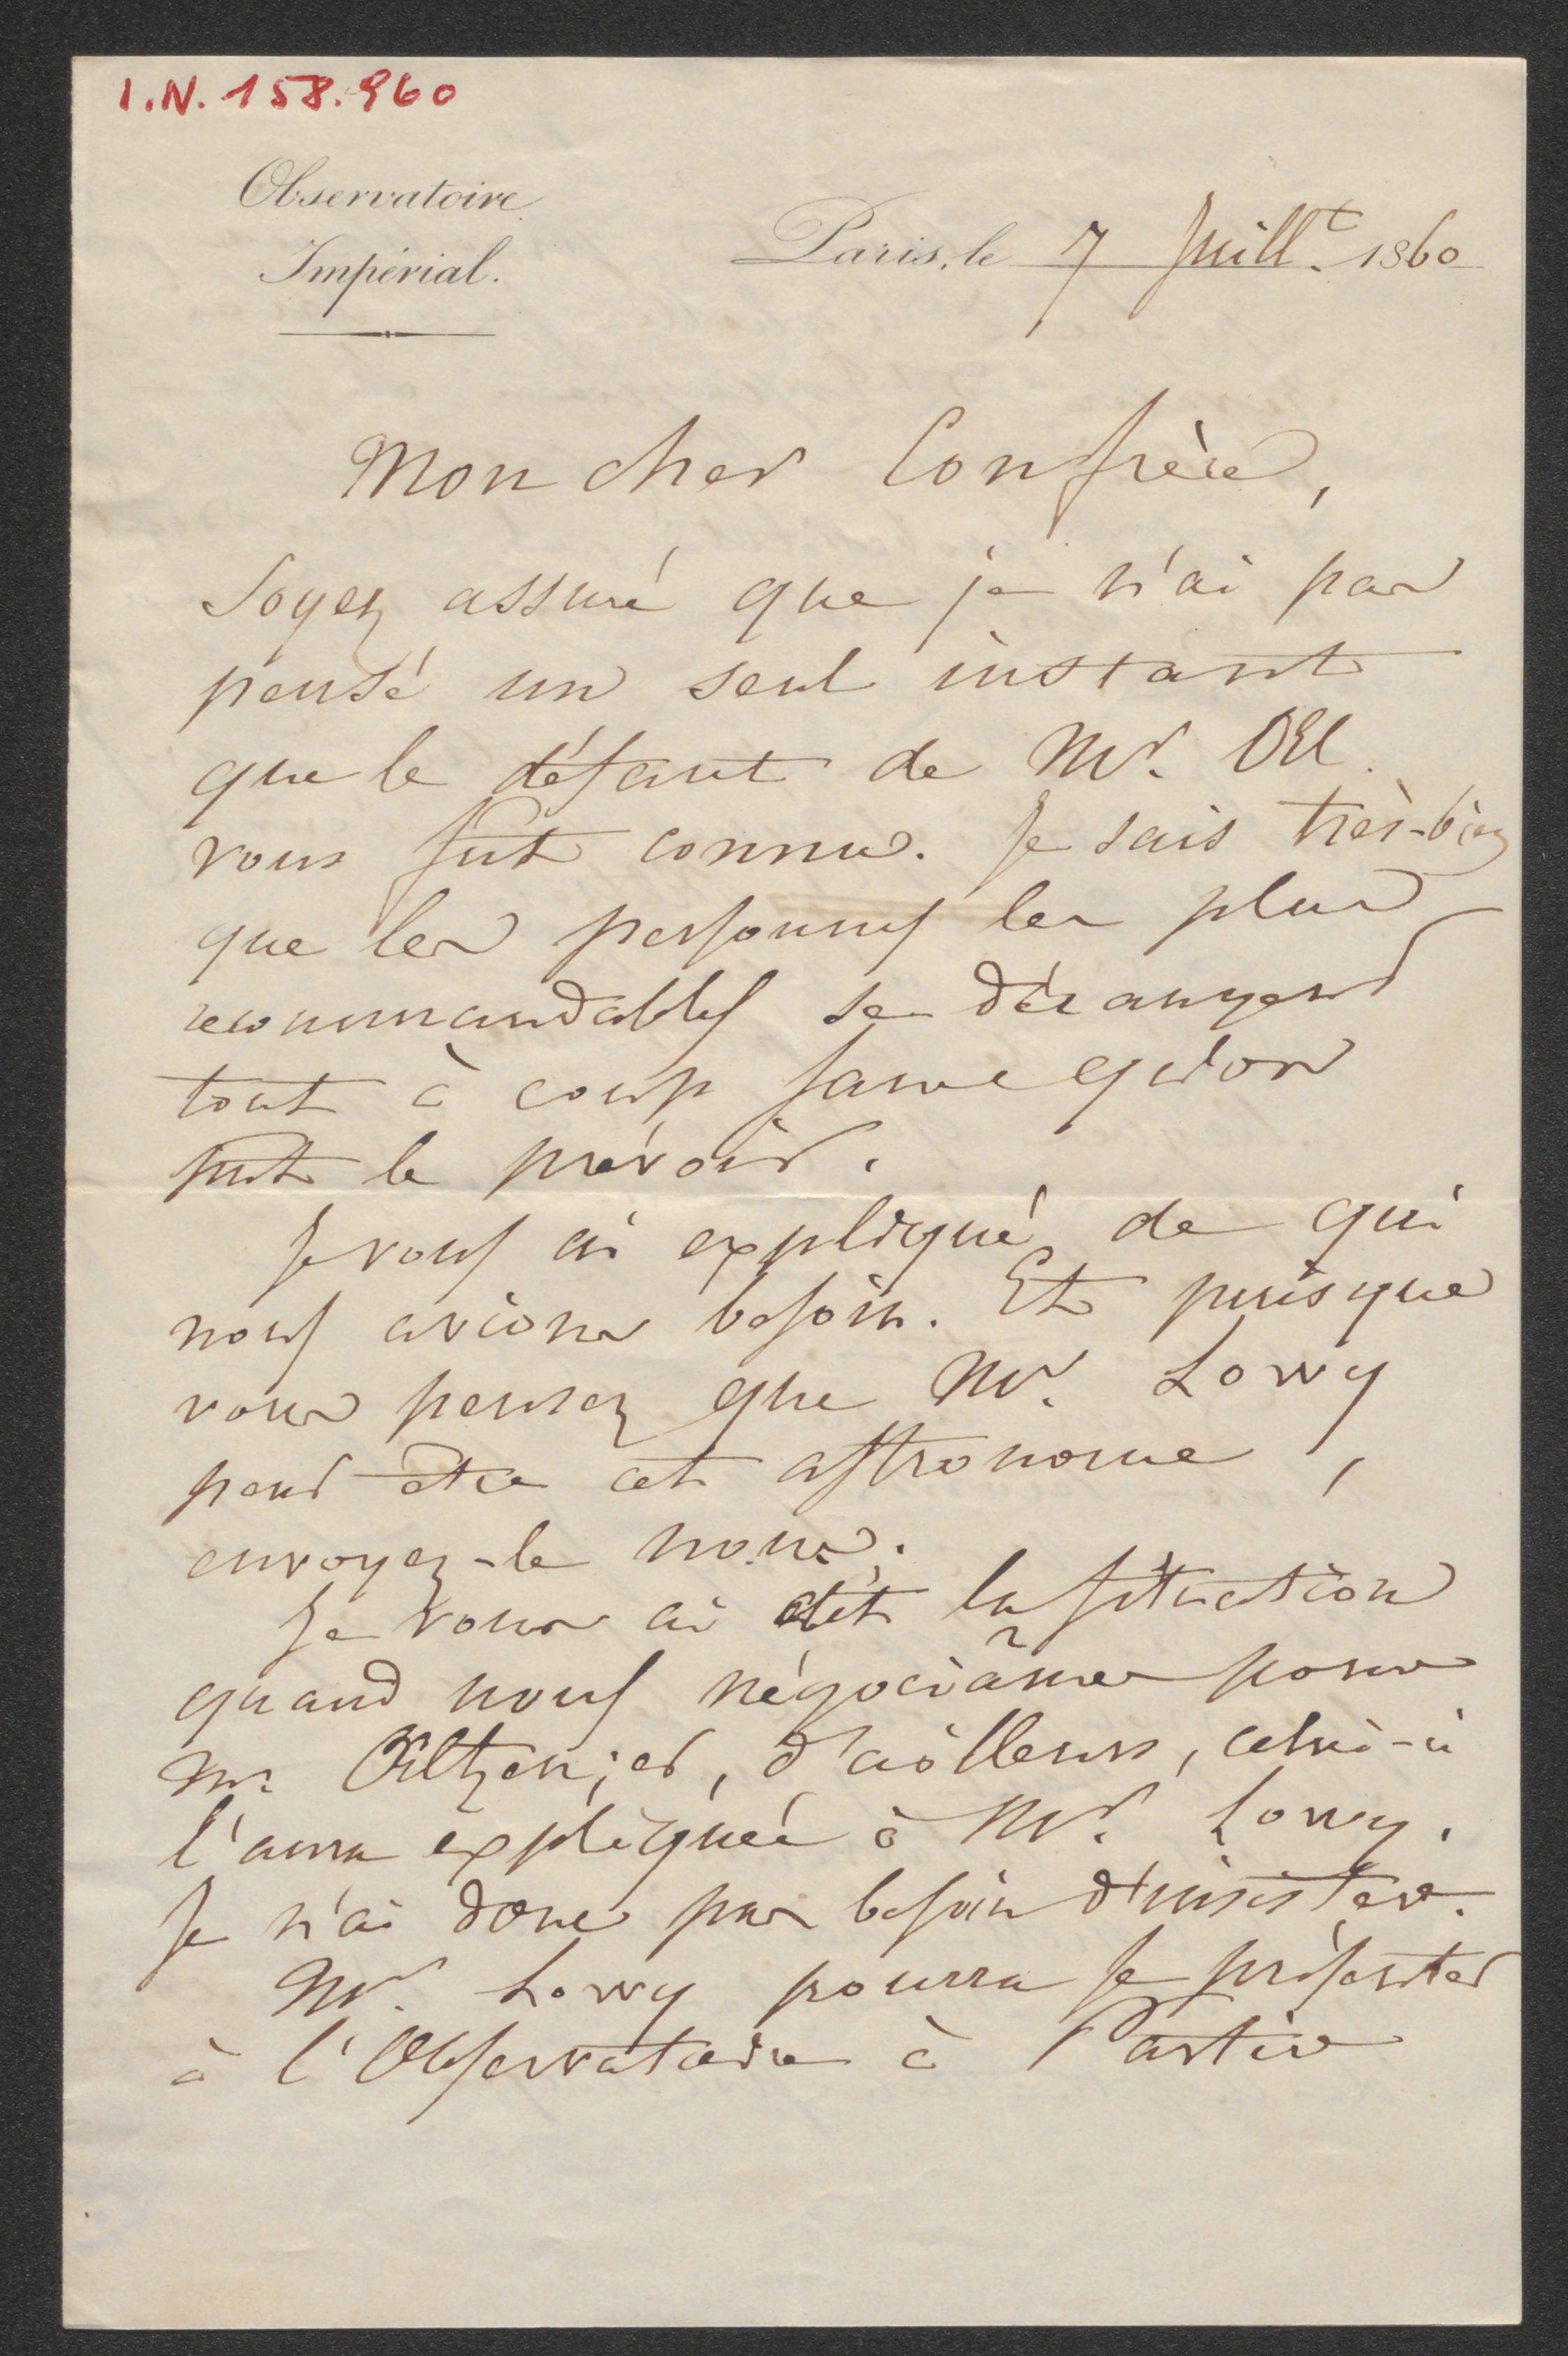 I.N. 158.960
Observatoire
Impérial.
Paris, le 7 Juill.t 1860
Mon cher Confrère,
Soyez assuré que je n'ai pas
pensé un seul instant
que le défaut de Mr.
vous fut connu. Je sais très-bien
que les personnes les plus
recommandables se dérangent
tout à coup sans qu'on
put le prévoir.
Je vous ai expliqué de qui
nous avions besoin. Et puisque
vous pensez que Mr. Lowy
peut être cet astronome,
envoyez-le nous.
Je vous ai dit la situation
quand nous négociâmes pour
Mr. Oeltzen; et, d'ailleurs, celui-ci
l'aura expliquée à Mr. Lowy.
Je n'ai donc pas besoin d'insister.
Mr. Lowy pourra se présenter
à l'Observatoire à Partir